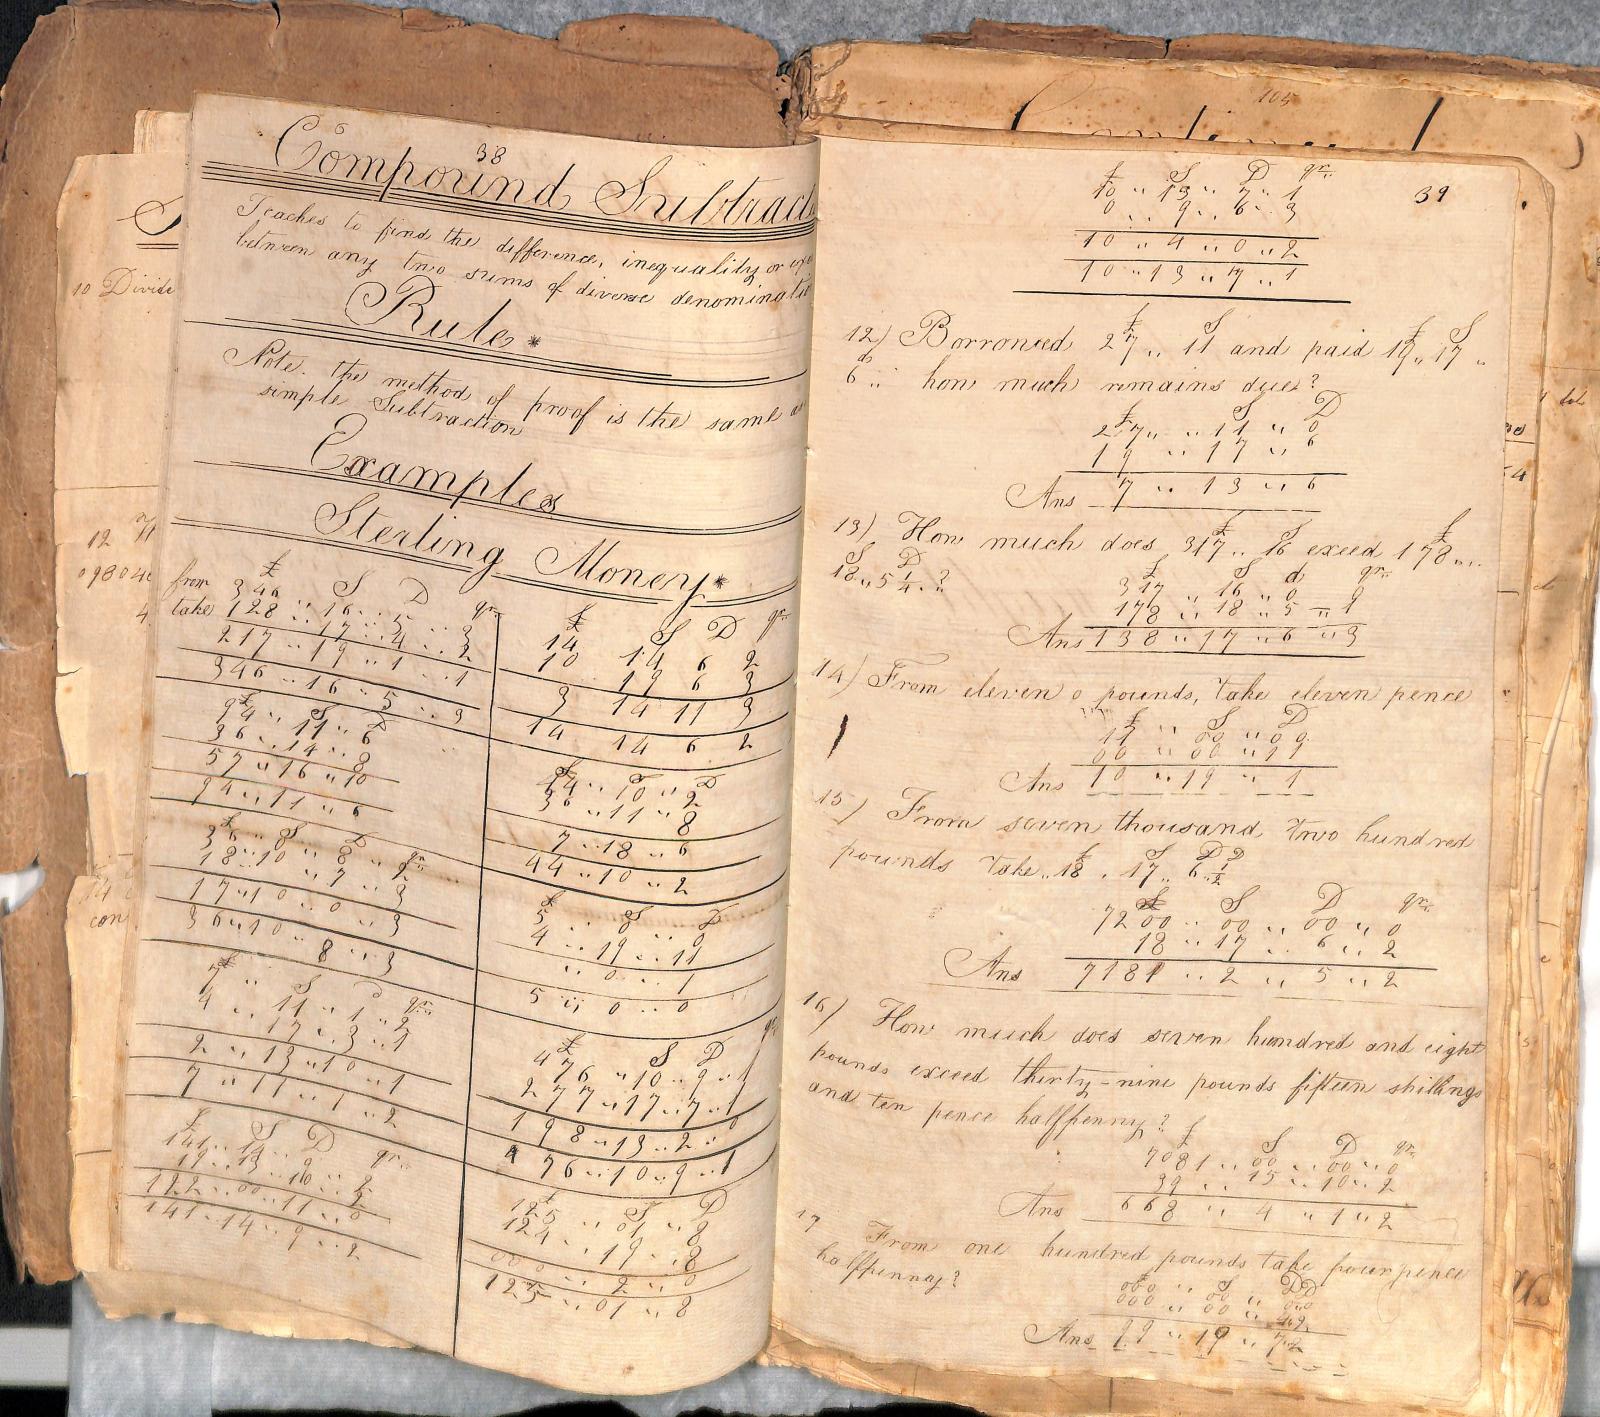 38
Compound Subtract
Teaches to find the difference, inequality or exce
between any two sums of diverse denominatio
Rule *
Note. the method of proof is the same as
simple Subtraction
Examples
Sterling Money *
£ S D qr
from 346 16 5 3
take 128 17 4 2
217 19 1 1
346 16 5 3
£ S D
94 11 6
36 14 8
57 16 10
94 11 6
£ S D qr
18 10 7 3
17 10 0 3
36 10 8 3
£ S D qr
7 11 1 2
4 17 3 1
2 13 10 1
7 11 1 2
£ S D qr
141 14 9 2
19 13 10 2
122 00 11 0
141 14 9 2
£ S D qr
14 14 6 2
10 19 6 3
3 14 11 3
14 14 6 2
£ S D
44 10 2
36 11 8
7 18 6
44 10 2
£ S D
5 0 0
4 19 11
0 1
5 0 0
£ S D qr
476 10 9 1
277 17 7 1
198 13 2 0
476 10 9 1
£ S D
125 01 8
124 19 8
000 2 0
125 01 8
105
39
£ S D qr
10 13 7 1
0 9 6 3
10 4 0 2
10 13 7 1
12) Borrowed £27 S11 and paid £19 S17
d6 how much remains due?
£ S D
27 11 0
19 17 6
Ans 7 13 6
13) How much does £317 S16 exeed £178
S18 D5 1/4 ?
£ S d qr
317 16 0 0
178 18 5 1
Ans 138 17 6 3
14) From eleven pounds, take eleven pence
£ S D
11 00 00
00 00 11
Ans 10 19 1
15) From seven thousand two hundred
pounds take £18 S17 D6 1/2
£ S D qr
7200 00 00 0
18 17 6 2
Ans 7181 2 5 2
16) How much does seven hundred and eight
pounds exceed thirty-nine pounds fifteen shillings
and ten pence halfpenny?
£ S D qr
7081 00 00 0
39 15 10 2
Ans 668 4 1 2
17 From one hundred pounds take four pence
halfpenny?
£ S D
000 00
Ans 99 19 7 2
10 Divide
12